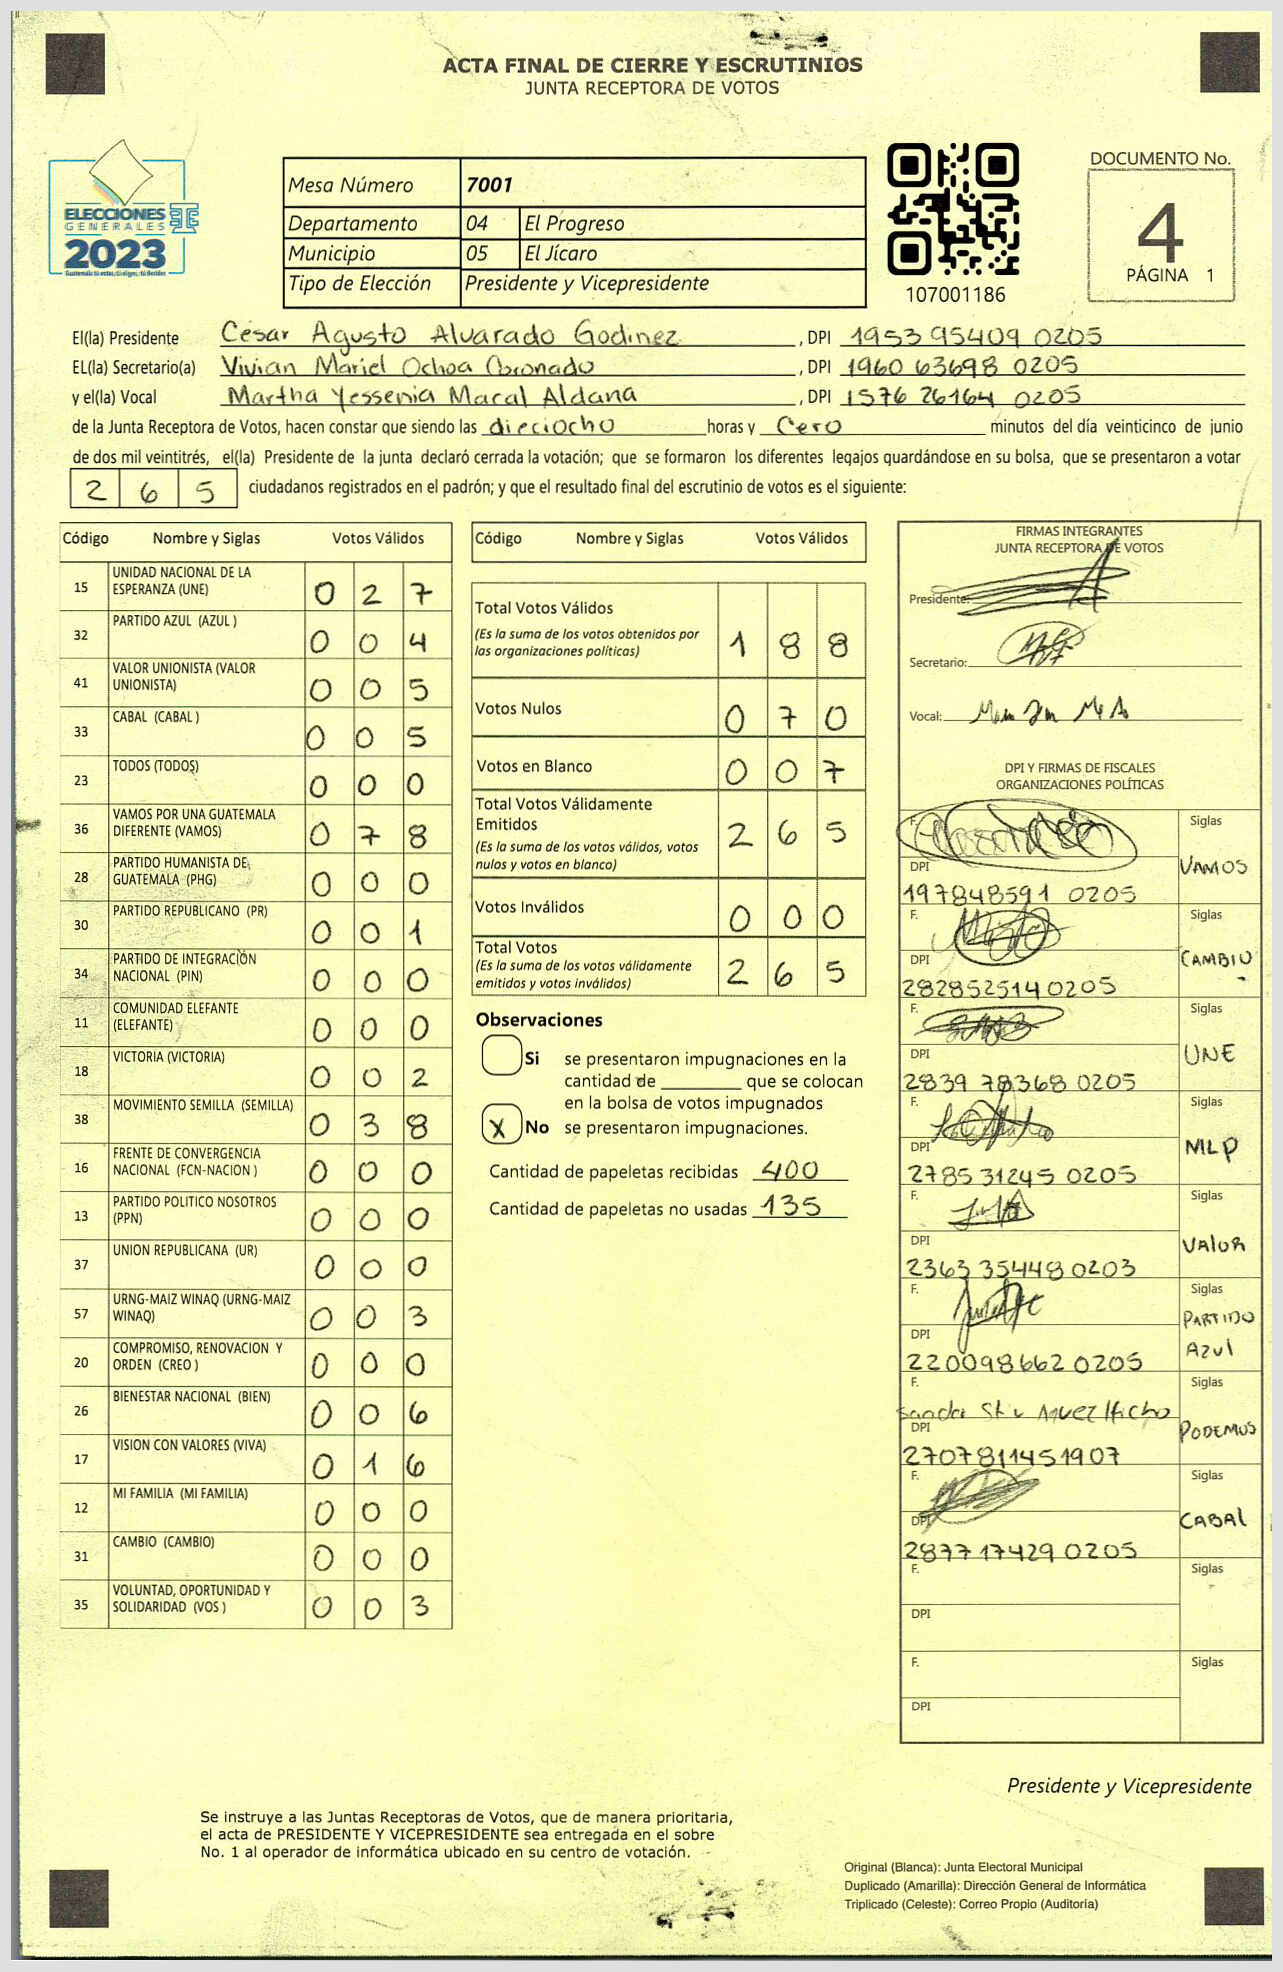 ACTA FINAL DE CIERRE Y ESCRUTINIOS
JUNTA RECEPTORA DE VOTOS
ELECCIONES
GENERALES
2023
Mesa Número 7001
Departamento 04 El Progreso
Municipio 05 El Jícaro
Tipo de Elección Presidente y Vicepresidente
107001186
DOCUMENTO No.
4
PÁGINA 1
El(la) Presidente César Agusto Alvarado Godinez, DPI 1953 95409 0205
EL(la) Secretario(a) Vivian Mariel Ochoa Coronado, DPI 1960 63698 0205
y el(la) Vocal Martha Yessenia Macal Aldana, DPI 1576 26164 0205
de la Junta Receptora de Votos, hacen constar que siendo las dieciocho horas y Cero minutos del día veinticinco de junio
de dos mil veintitrés, el(la) Presidente de la junta declaró cerrada la votación; que se formaron los diferentes legajos guardándose en su bolsa, que se presentaron a votar
2 6 5 ciudadanos registrados en el padrón; y que el resultado final del escrutinio de votos es el siguiente:
Código Nombre y Siglas Votos Válidos
15 UNIDAD NACIONAL DE LA ESPERANZA (UNE) 0 2 7
32 PARTIDO AZUL (AZUL ) 0 0 4
41 VALOR UNIONISTA (VALOR UNIONISTA) 0 0 5
33 CABAL (CABAL ) 0 0 5
23 TODOS (TODOS) 0 0 0
36 VAMOS POR UNA GUATEMALA DIFERENTE (VAMOS) 0 7 8
28 PARTIDO HUMANISTA DE GUATEMALA (PHG) 0 0 0
30 PARTIDO REPUBLICANO (PR) 0 0 1
34 PARTIDO DE INTEGRACIÒN NACIONAL (PIN) 0 0 0
11 COMUNIDAD ELEFANTE (ELEFANTE) 0 0 0
18 VICTORIA (VICTORIA) 0 0 2
38 MOVIMIENTO SEMILLA (SEMILLA) 0 3 8
16 FRENTE DE CONVERGENCIA NACIONAL (FCN-NACION ) 0 0 0
13 PARTIDO POLITICO NOSOTROS (PPN) 0 0 0
37 UNION REPUBLICANA (UR) 0 0 0
57 URNG-MAIZ WINAQ (URNG-MAIZ WINAQ) 0 0 3
20 COMPROMISO, RENOVACION Y ORDEN (CREO ) 0 0 0
26 BIENESTAR NACIONAL (BIEN) 0 0 6
17 VISION CON VALORES (VIVA) 0 1 6
12 MI FAMILIA (MI FAMILIA) 0 0 0
31 CAMBIO (CAMBIO) 0 0 0
35 VOLUNTAD, OPORTUNIDAD Y SOLIDARIDAD (VOS ) 0 0 3
Código Nombre y Siglas Votos Válidos
Total Votos Válidos 1 8 8
(Es la suma de los votos obtenidos por
las organizaciones políticas)
Votos Nulos 0 7 0
Votos en Blanco 0 0 7
Total Votos Válidamente
Emitidos 2 6 5
(Es la suma de los votos válidos, votos
nulos y votos en blanco)
Votos Inválidos 0 0 0
Total Votos 2 6 5
(Es la suma de los votos válidamente
emitidos y votos inválidos)
Observaciones
Si se presentaron impugnaciones en la
cantidad de ________ que se colocan
en la bolsa de votos impugnados
X No se presentaron impugnaciones.
Cantidad de papeletas recibidas 400
Cantidad de papeletas no usadas 135
FIRMAS INTEGRANTES
JUNTA RECEPTORA DE VOTOS
Presidente:
Secretario:
Vocal:
DPI Y FIRMAS DE FISCALES
ORGANIZACIONES POLÍTICAS
F. Siglas
VAMOS
DPI
197848591 0205
F. Siglas
CAMBIO
DPI
282852514 0205
F. Siglas
UNE
DPI
2839 78368 0205
F. Siglas
MLP
DPI
2785 31245 0205
F. Siglas
VALOR
DPI
2363 35448 0203
F. Siglas
PARTIDO
AZUL
DPI
220098662 0205
F. Siglas
PODEMOS
DPI
2707811451907
F. Siglas
CABAL
DPI
2877 17429 0205
F. Siglas
DPI
F. Siglas
DPI
Presidente y Vicepresidente
Se instruye a las Juntas Receptoras de Votos, que de manera prioritaria,
el acta de PRESIDENTE Y VICEPRESIDENTE sea entregada en el sobre
No. 1 al operador de informática ubicado en su centro de votación.
Original (Blanca): Junta Electoral Municipal
Duplicado (Amarilla): Dirección General de Informática
Triplicado (Celeste): Correo Propio (Auditoría)